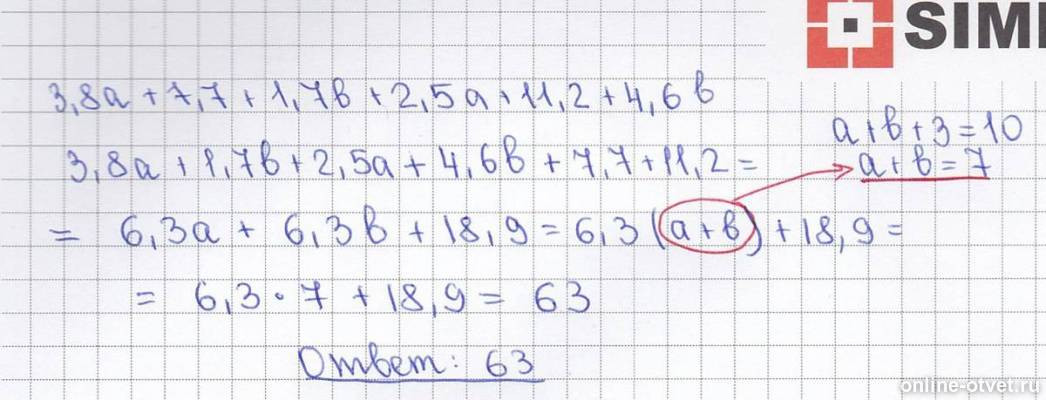 SIM
3,8a + 7,7 + 1,7в + 2,5a + 11,2 + 4,6в
a + в + 3 = 10
3,8a + 1,7в + 2,5a + 4,6в + 7,7 + 11,2 =
a + в = 7
= 6,3a + 6,3в + 18,9 = 6,3 (a + в) + 18,9 =
= 6,3 · 7 + 18,9 = 63
Ответ: 63
online-otvet.ru